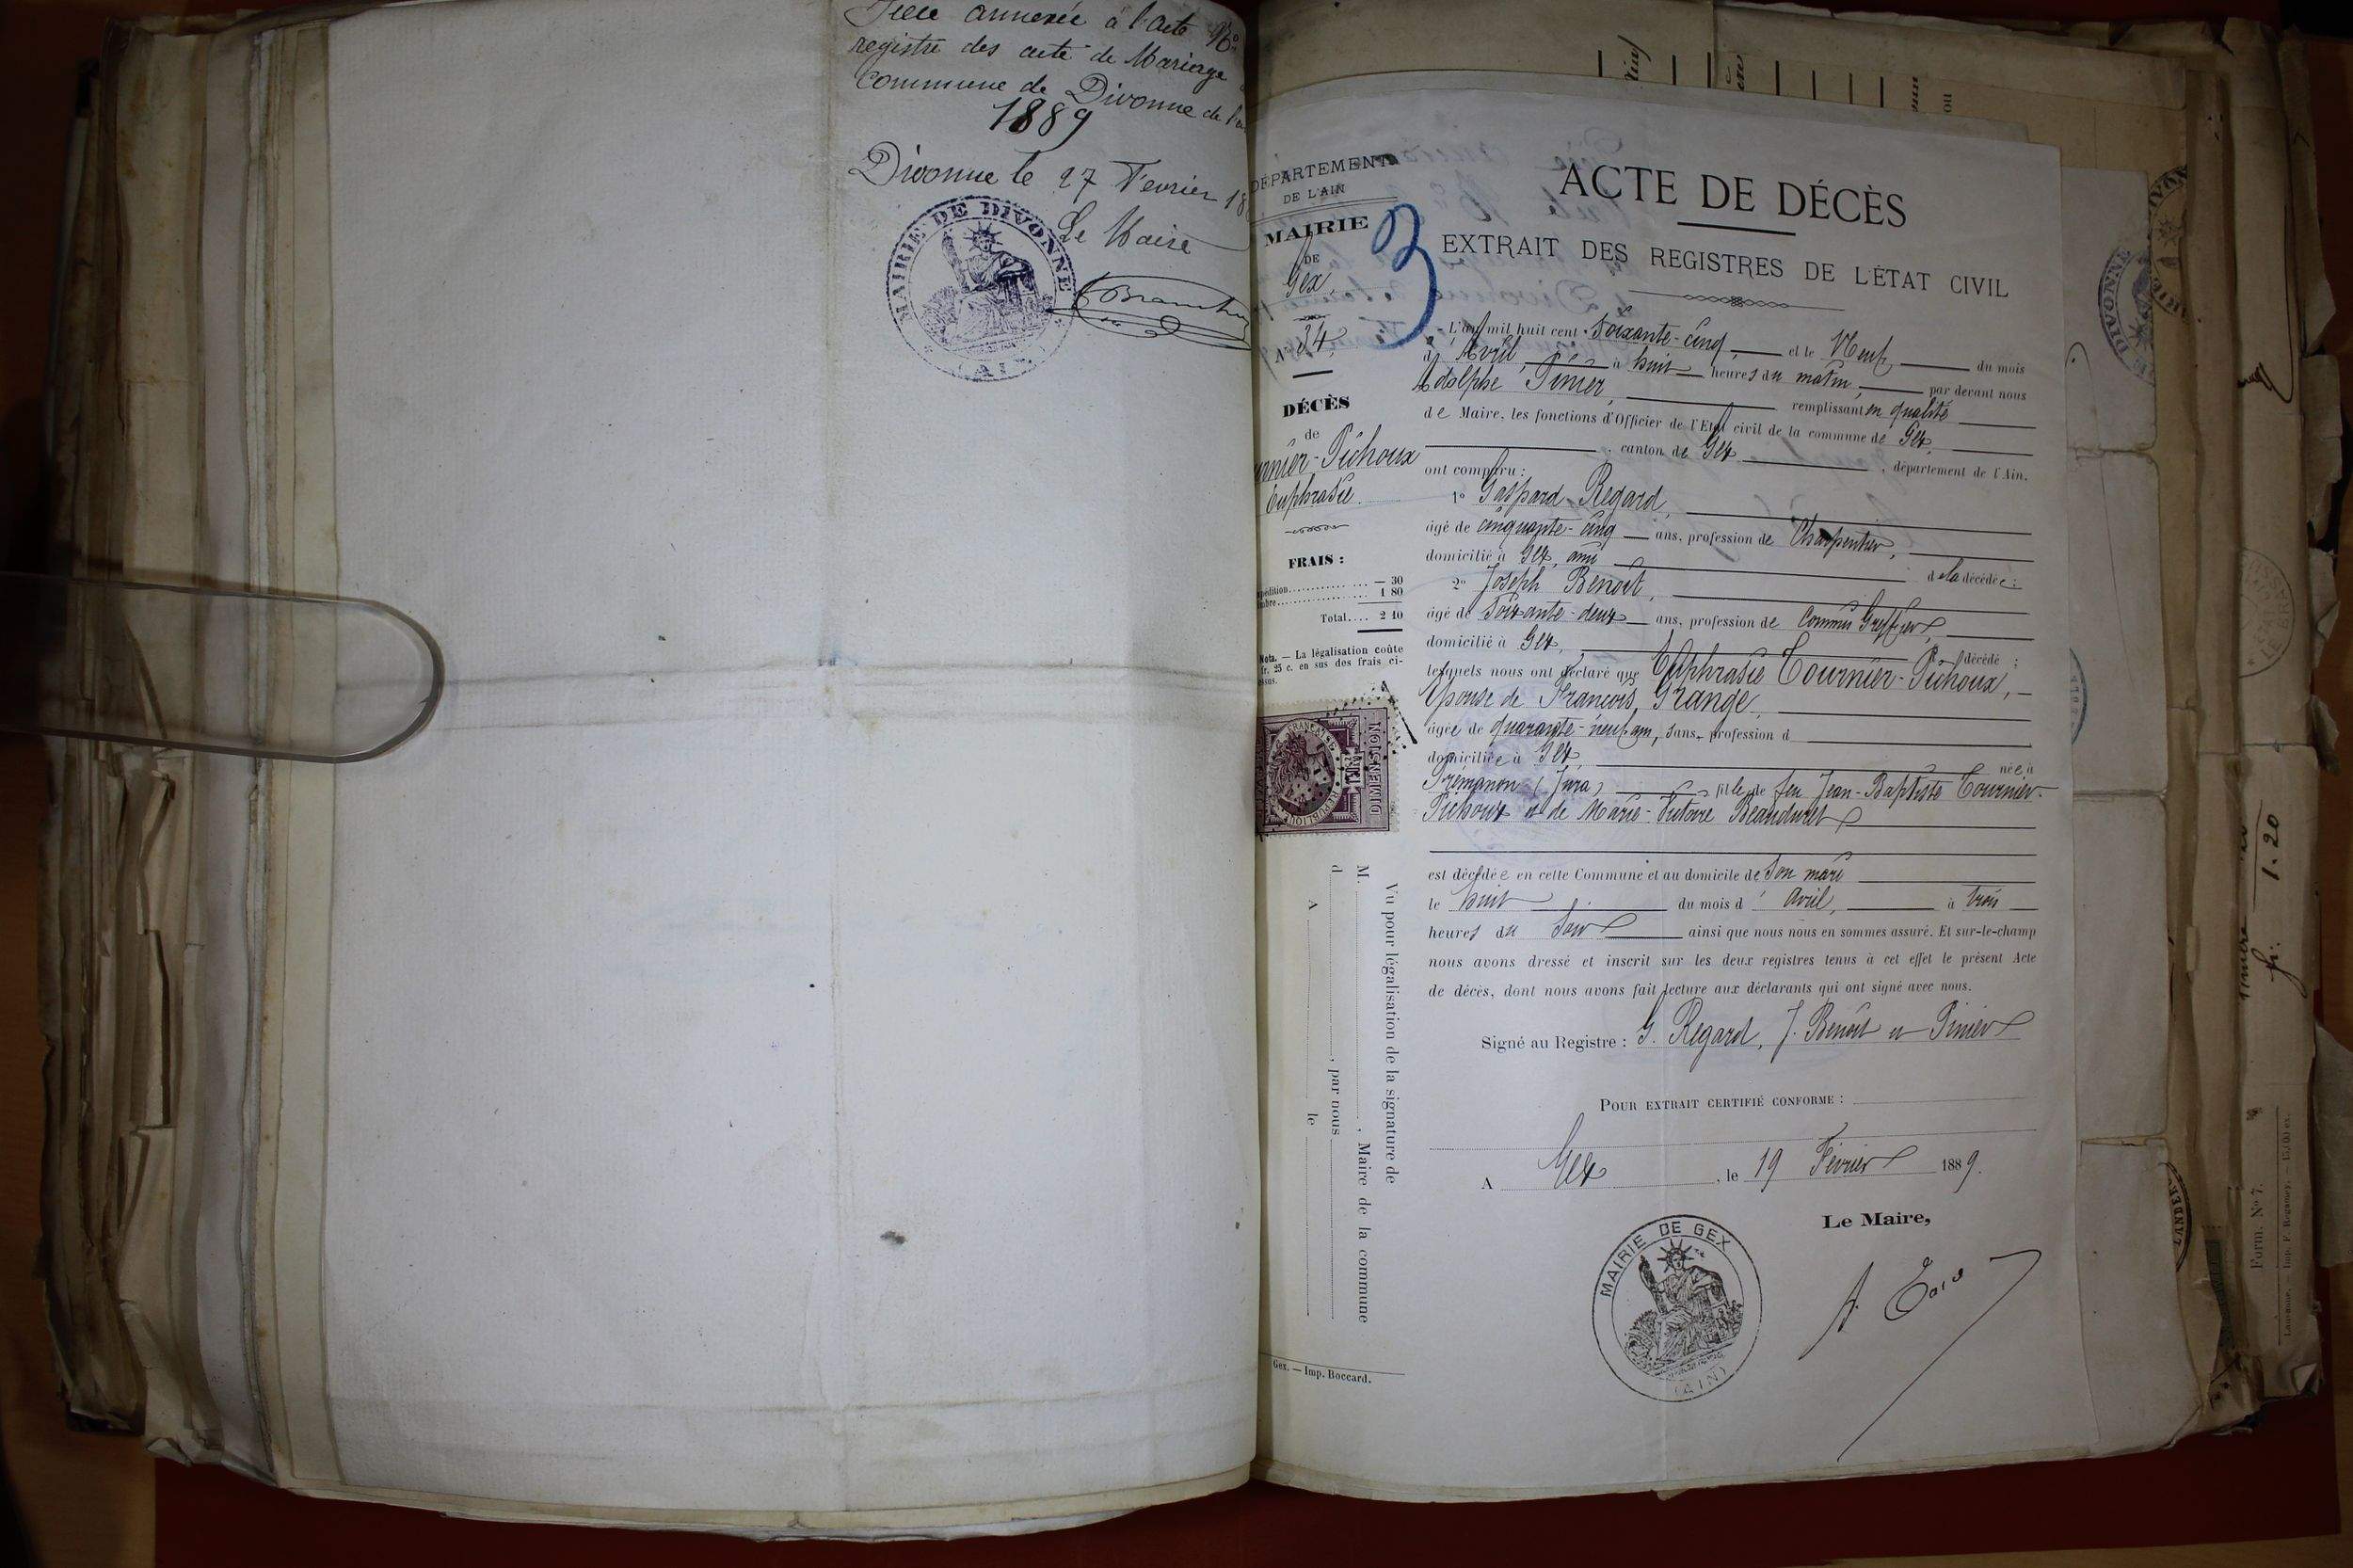 Pièce annexée à l'acte No
registre des acte de Mariage
Commune de Divonne de l'an
1889
Divonne le 27 Fevrier 18
Le Maire
MAIRIE DE DIVONNE
(AIN)
DÉPARTEMENT
DE L'AIN
MAIRIE
DE
Gex,
No 34,
DÉCÈS
de
urnier-Pichoux
Euphrasie.
FRAIS :
pédition.......... — 30
mbre.......... 1 80
Total.... 2 10
Nota. — La légalisation coûte
fr. 25 c. en sus des frais ci-
essus.
DIMENSION
RÉPUBLIQUE FRANÇAISE
Vu pour légalisation de la signature de
M. , Maire de la commune
d , par nous
A le
Gex. — Imp. Boccard.
3
ACTE DE DÉCÈS
EXTRAIT DES REGISTRES DE L'ÉTAT CIVIL
L'an mil huit cent soixante-cinq, et le Neuf du mois
d'Avril à huit heures du matin, par devant nous
Adolphe Pinier, remplissant en qualité
de Maire, les fonctions d'Officier de l'Etat civil de la commune de Gex,
, canton de Gex , département de l'Ain,
ont comparu :
1o Gaspard Regard,
âgé de cinquante-cinq ans, profession de Charpentier,
domicilié à Gex, ami de la décédée :
2o Joseph Benoit,
âgé de soixante-deux ans, profession de Commis Greffier,
domicilié à Gex, d décédé ;
lesquels nous ont déclaré que Euphrasie Tournier-Pichoux,
Epouse de François Grange,
âgée de quarante-neuf ans, sans profession d
domiciliée à Gex, née à
Prémanon (Jura) fille de feu Jean-Baptiste Tournier-
Pichoux et de Marie-Victoire Beauduret
est décédée en cette Commune et au domicile de son mari
le huit du mois d'Avril, à trois
heures du soir ainsi que nous nous en sommes assuré. Et sur-le-champ
nous avons dressé et inscrit sur les deux registres tenus à cet effet le présent Acte
de décès, dont nous avons fait lecture aux déclarants qui ont signé avec nous.
Signé au Registre : G. Regard, J. Benoit et Pinier
POUR EXTRAIT CERTIFIÉ CONFORME :
A Gex , le 19 Février 1889.
Le Maire,
MAIRIE DE GEX
(AIN)
DIVONNE
fr. 1.20
Form. No 7.